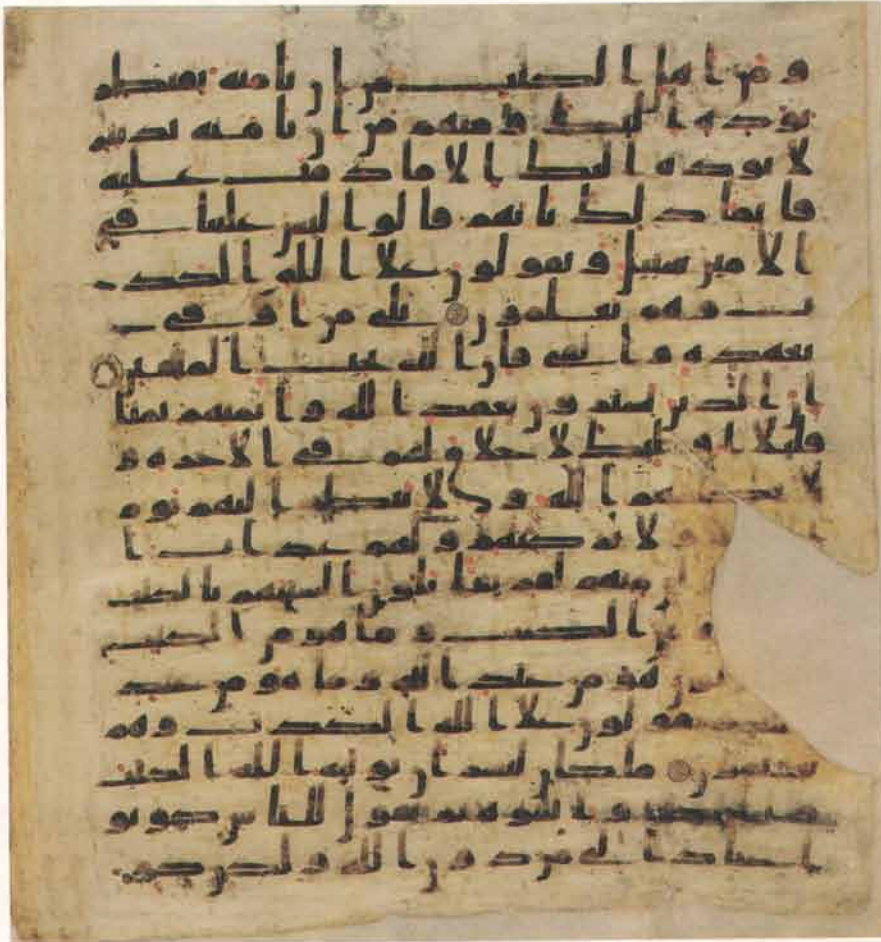 ومن اهل الكتب من ان تامنه بقنطر
يوده اليك ومنهم من ان تامنه بدينر
لا يوده اليك الا ما دمت عليه
قايما ذلك بانهم قالوا ليس علينا في
الامين سبيل ويقولون علا الله الكذ
ب وهم يعلمون بلى من اوفى
بعهده واتقى فان الله يحب المتقين
ان الذين يشترون بعهد الله وايمنهم ثمنا
قليلا اوليك لا خلاق لهم في الاخره و
لا يكلمهم الله ولا ينظر اليهم يوم
ولا يزكيهم ولهم عذاب ا
ن منهم لفريقا يلون السنتهم بالكتب
من الكتب وما هو من الكتب
لون هو من عند الله وما هو من عند
يقولون علا الله الكذب وهم
يعلمون ما كان لبشر ان يوتيه الله الكتب
والنبوه ثم يقول للناس كونو
ا عبادا لي من دون الله ولكن كو